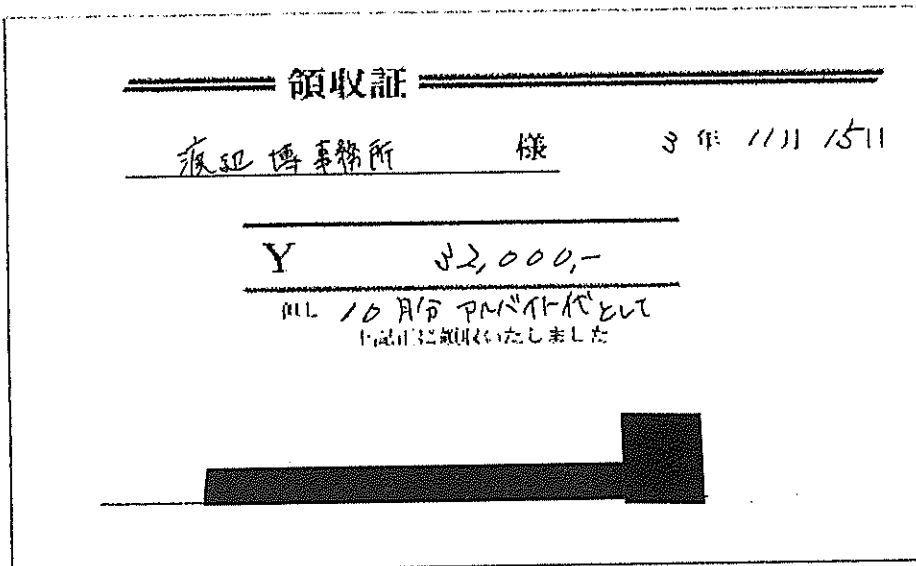 領収証
渡辺博事務所 様 3年 11月 15日
¥ 32,000,-
但し 10月分 アルバイト代として
上記正に領収いたしました